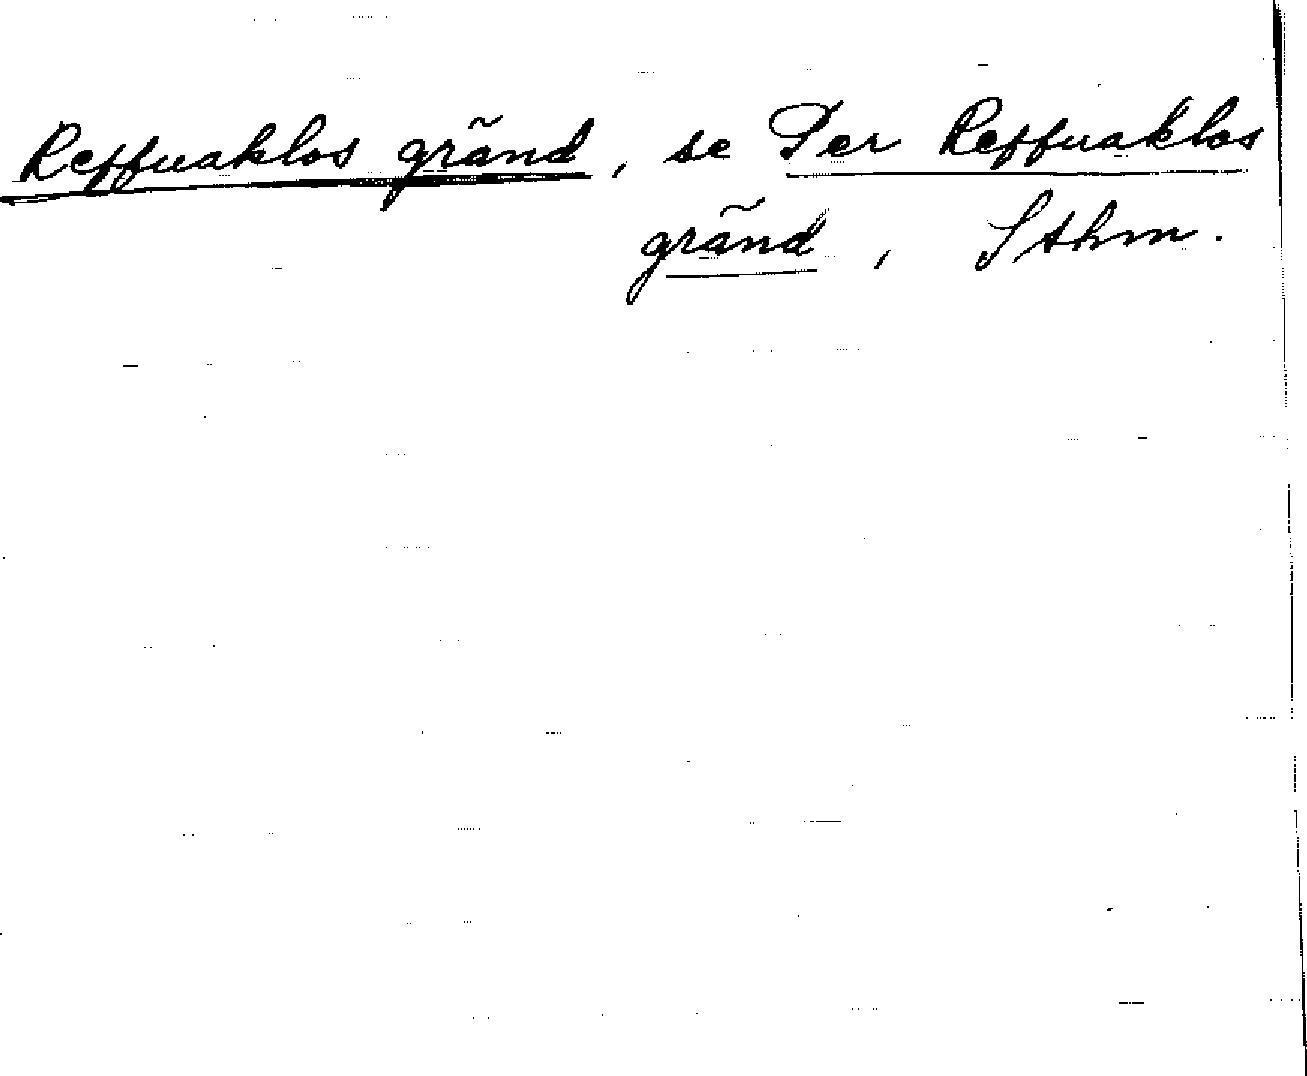 Reffuaklos gränd, se Per Reffuaklos
gränd, Sthm.